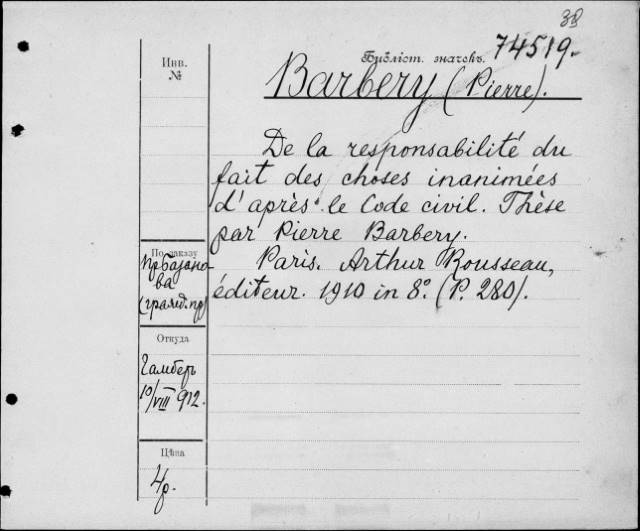 38
Библіот. значекъ.
74519.
Инв.
№
Barbery (Pierre).
De la responsabilité du
fait des choses inanimées
d'après le Code civil. Thèse
par Pierre Barbery.
Paris. Arthur Rousseau,
éditeur. 1910 in 8°. (P. 280).
По заказу
ва
Откуда
Гамберъ
10/VIII 912.
Цѣна
4р.